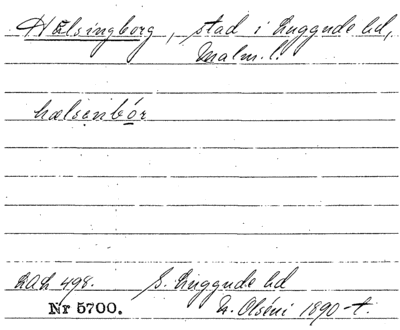 Hälsingborg, stad i Luggude hd,
Malm. l.
hælsenbór
LAL 498. S. Luggude hd
Nr 5700. N. Olséni 1890-t.